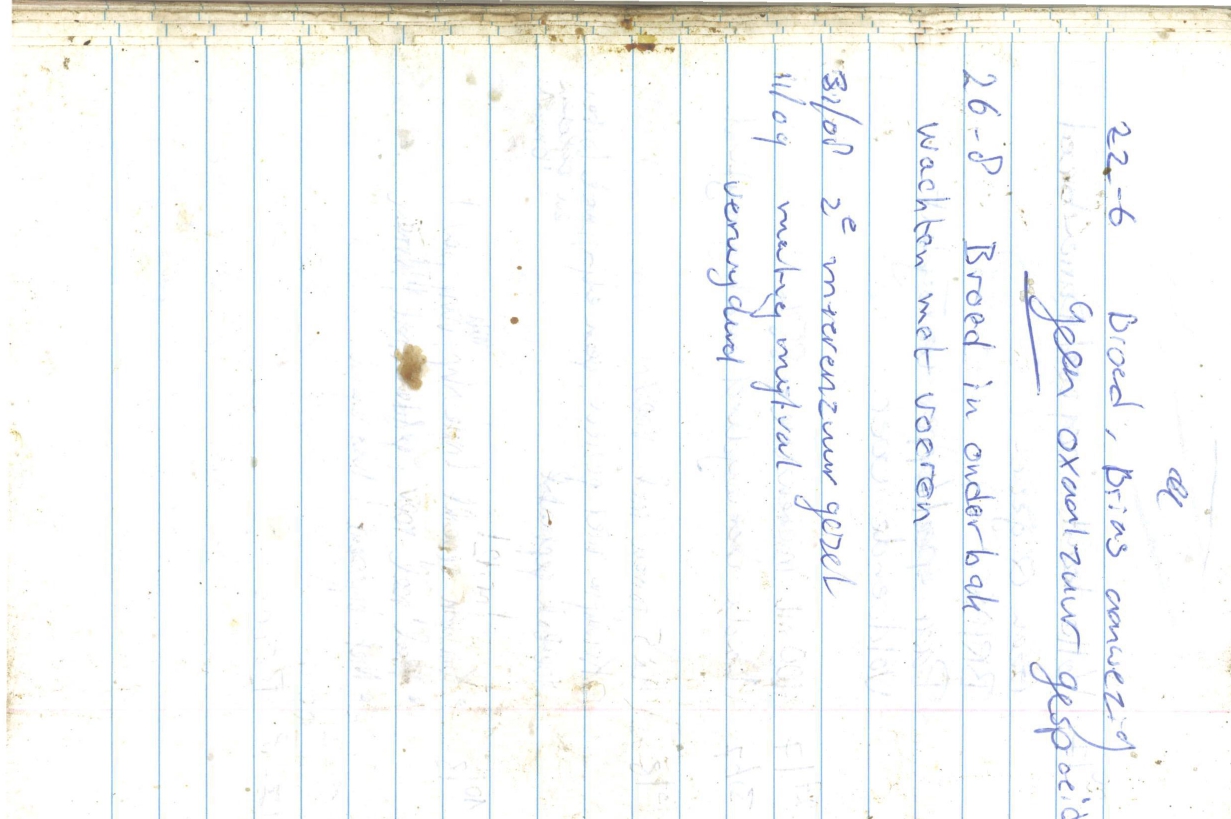 22-6 Broed, Brias aanwezig
Geen oxaalzuur gespoeid
26-8 Broed in onderbak
wachten met voeren
31/08 2e mierenzuur gezet
11/09 matig mijtval
verwyderd